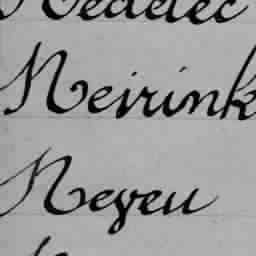 Nedelec
Neirink
Neyeu